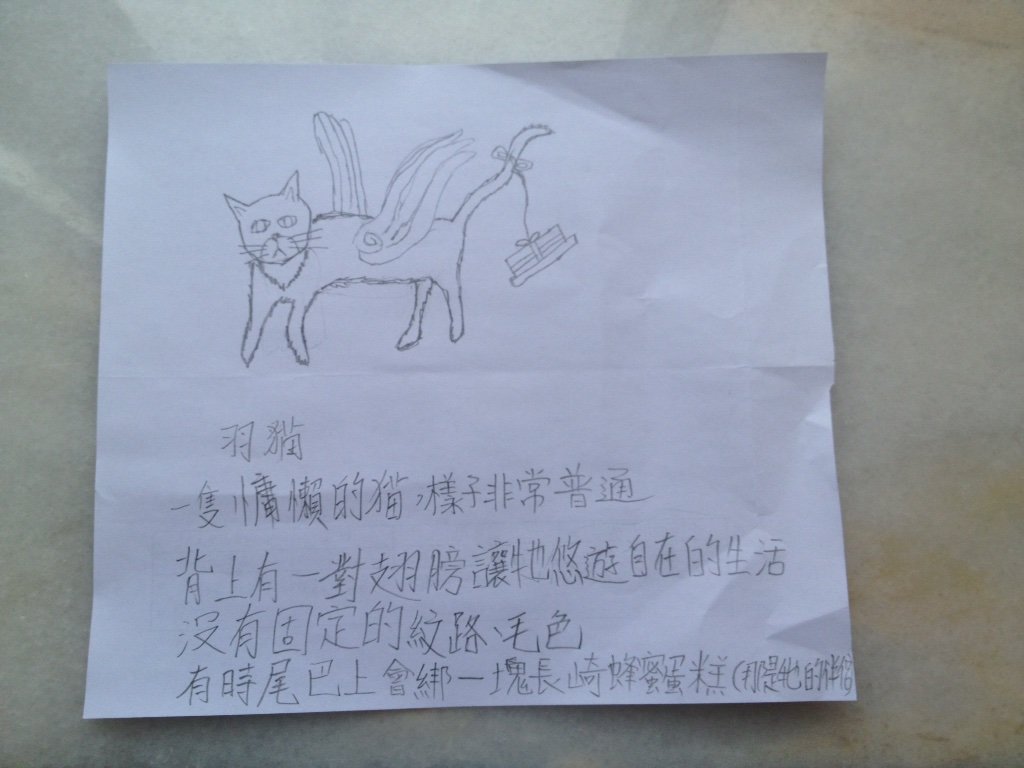 羽貓
一隻慵懶的猫,樣子非常普通
背上有一對翅膀讓牠悠遊自在的生活
沒有固定的紋路、毛色
有時尾巴上會綁一塊長崎蜂蜜蛋糕(那是牠的